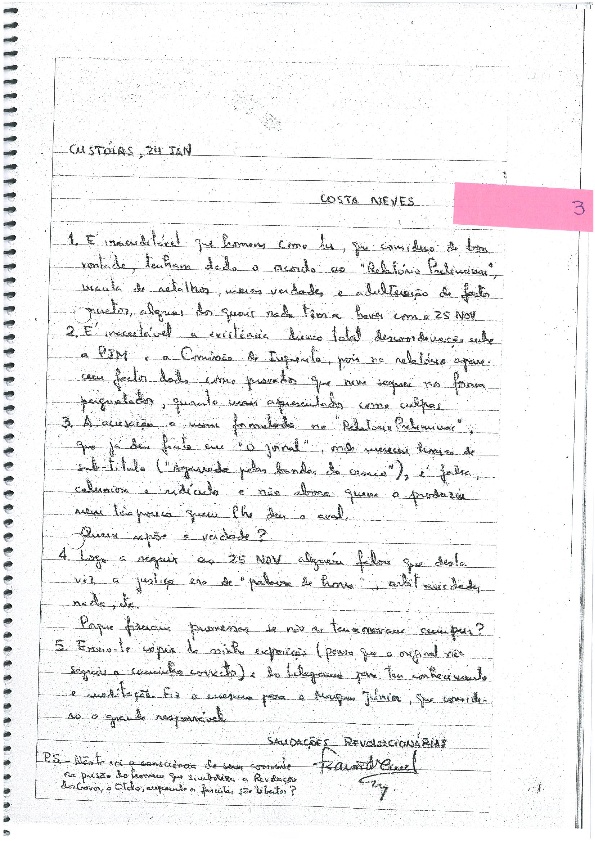 CUSTÓIAS, 24 JAN
COSTA NEVES
3
1. É inacreditável que homens como tu, que considero de boa
vontade, tenham dado o acordo ao "Relatório Preliminar",
manta de retalhos, meias verdades e adulteração de factos
alguns dos quais nada têm a haver com o 25 NOV
2. É inaceitável a existência duma total descoordenação entre
a PJM e a Comissão de Inquérito, pois no relatório apare-
cem factos dados como provados que nem sequer me foram
perguntados, quanto mais apresentados como culpas.
3. A acusação a mim formulada no "Relatório Preliminar",
que já deu fonte em "O Jornal", onde mereceu honra de
sub-título ("Aguarda pelas bandas do"), é falsa,
caluniosa e ridícula e não abona quem a produziu
nem tão pouco quem lhe deu o aval.
Quem repõe a verdade?
4. Logo a seguir ao 25 NOV alguém falou que desta
vez a justiça era de "palavra de honra", arbitrariedades
nada, etc.
Porque fizeram promessas se não as tencionavam cumprir?
5. Envio-te cópia da minha exposição (penso que o original não
seguiu o caminho correcto) e do telegrama para teu conhecimento
e meditação. Fiz o mesmo para o Marques Júnior, que conside-
ro o grande responsável
SAUDAÇÕES REVOLUCIONÁRIAS
P.S. - a consciência de quem consente
na prisão do homem que simboliza a Revolução
dos Cravos, o Otelo, enquanto os fascistas são libertos?